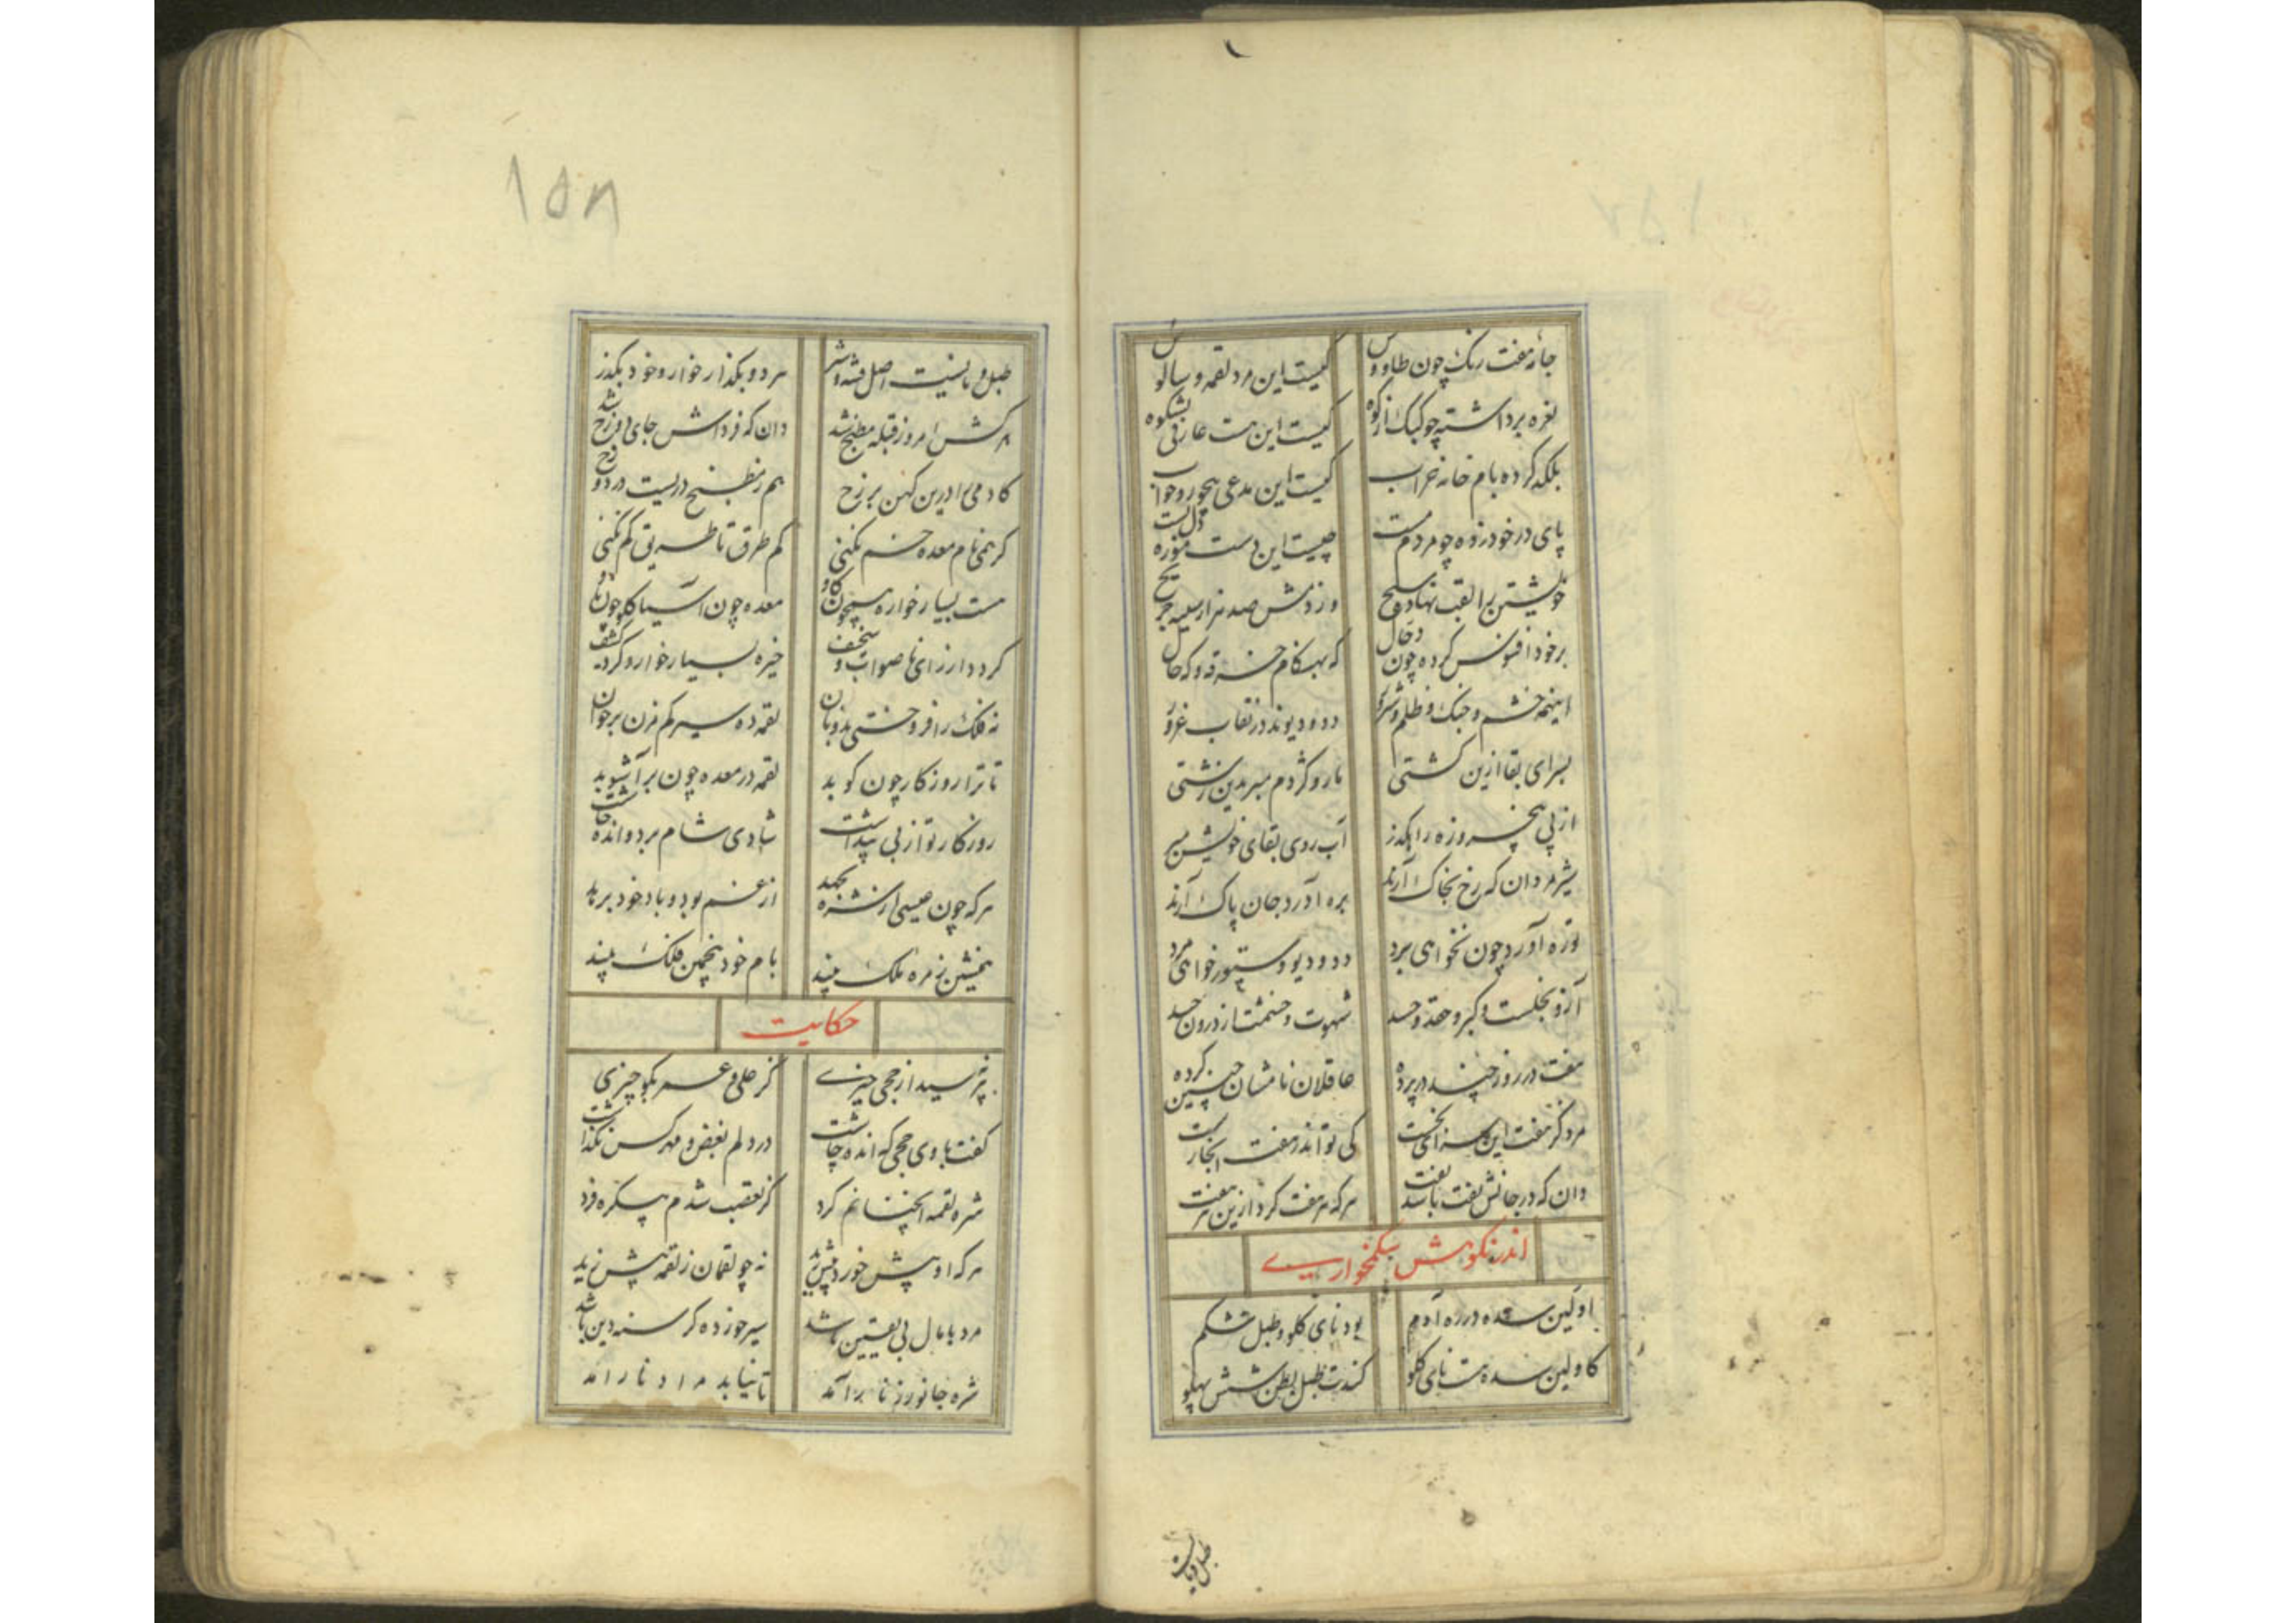 جامه هفت رنگ چون طاووس
کیست این مرد لقمه و سالوس
نعره برداشته چو کبک از کوه
کیست این هست عارفی بشکوه
بلکه کرده بام خانه خراب
کیست این مدعی بیخور و خواب
پای در خود زده چو مردم مست
چیست این دست
خویشتن را لقب نهاده مسیح
وز دمش صد هزار سینه جریح
بر خود افسوس کرده چون دجال
که بهنگام خرقه و گه حال
اینهمه خشم و جنک و ظلم و شرور
دد و دیوند در نقاب غرور
بسرای بقا ازین کشتی
مار و کژدم مبر بدین زشتی
از پی پنج روزه راهگذر
آب روی بقای خویش مبر
شیرمردان که رخ بخاک آرند
بره آورد جان پاک آرند
توره آورد چون نخواهی برد
دد و دیو و ستور خواهی مرد
آز و بخلست و کبر و حقد و حسد
شهوت و خشمت از درون جسد
هفت در روز چند در پرده
عاقلان نامشان چنین کرده
کی تو اندر هفت
دان که در جانش نفت باشد نفت
هر که هر هفت کرد ازین هر هفت
اندر نکوهش شکمخواری
اولین سده در ره آدم
بود نای کلو و طبل شکم
کاولین سده هست نای کلو
کندت طبل بطن شش پهلو
طبل و نایست
۱۵۸
طبل و نایست اصل فتنه و شر
هر دو بکذار خوار و خود بکذر
هر کش امروز قبله مطبخ شد
دان که فرداش جای دوزخ شد
کادمی را درین کهن برزخ
هم ز مطبخ دریست در دوزخ
کر همی نام معده خم نکنی
کم طرق تا طریق کم نکنی
هست بسیار خوار همچون کاو
معده چون آسیا کلو چون ناو
کرد دار زای ناصواب و سخیف
خیره بسیار خوار و کرد کشف
نه فلک را فروختی بدو نان
لقمه ده سیر کم مزن بر خوان
تا ترا روزکار چون کوبد
لقمه در معده چون برآشوبد
روزکار تو از پی پنداشت
شادی شام برد و انده چاشت
هر که چون عیسی از شره بجهد
از غم بود و باد خود برهد
همنشین زمره ملک بیند
بام خود پنجمین فلک بیند
حکایت
بپرسید از جحی حیزی
کز علی و عمر بکو چیزی
کفت با وی جحی که انده چاشت
در دلم بغض و مهر کس نکذاشت
شره لقمه آنچنانم کرد
کز تعصب شدم بیکره فرد
هر که او بیش خورد بیش
نه چو لقمان ز لقمه بیش زید
مرد با مال بی یقین باشد
سیر خورده کرسنه دین باشد
شره جانور ز نا برآمد
تا نیاید مراد نارآمد